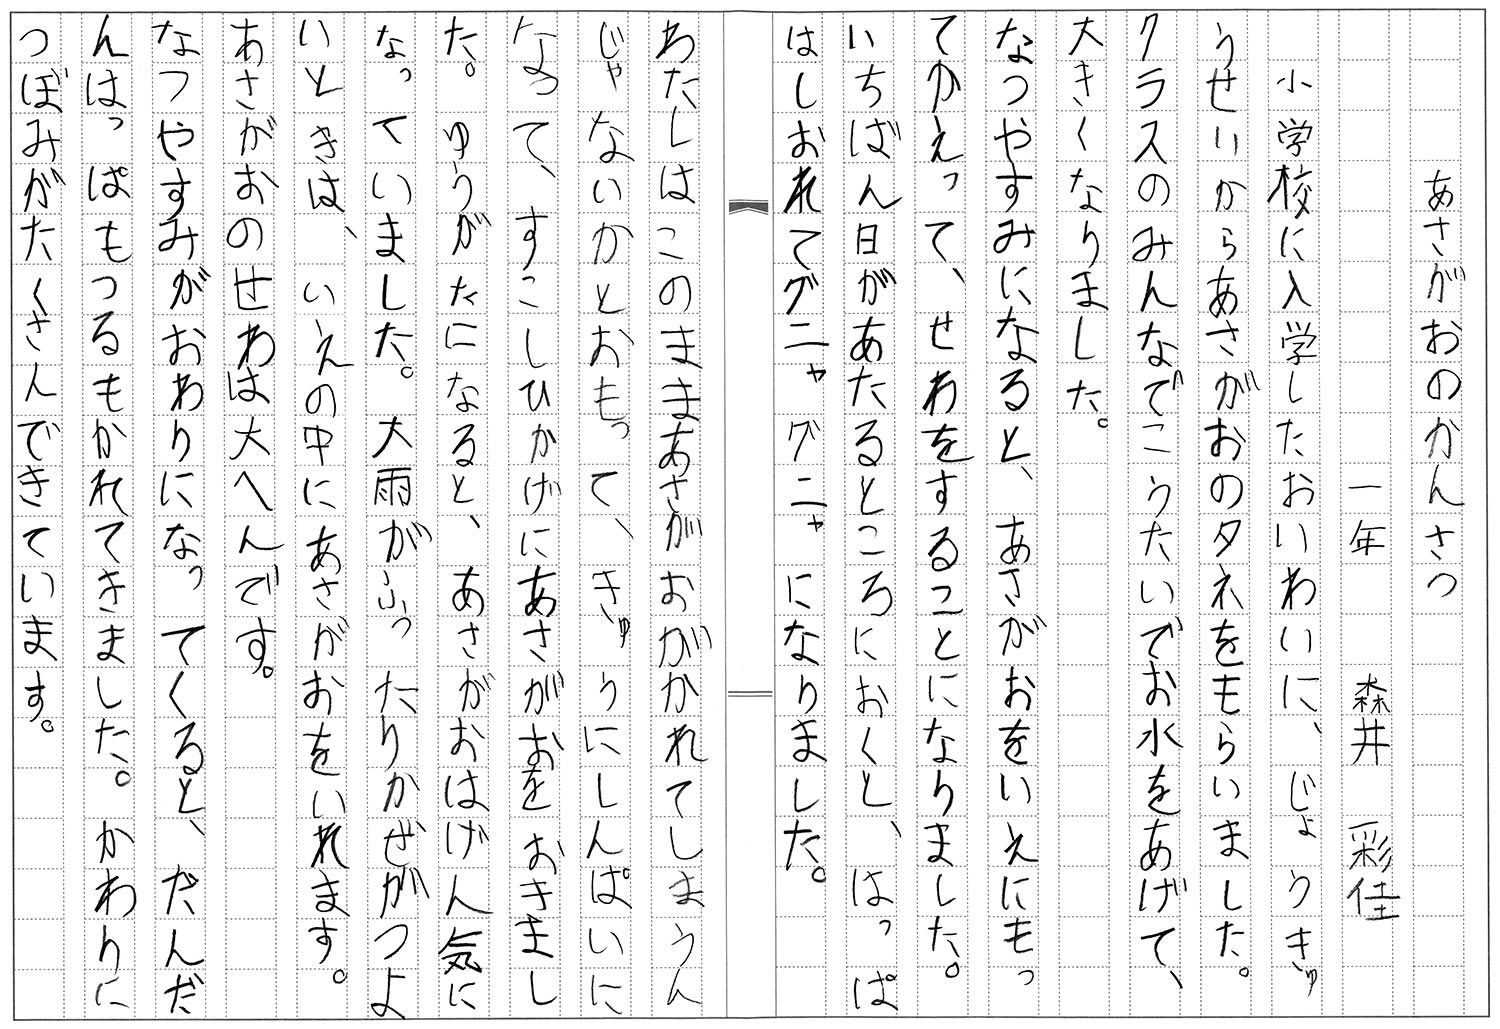 あさがおのかんさつ
一年　森井　彩佳
小学校に入学したおいわいに、じょうきゅ
うせいからあさがおのタネをもらいました。
クラスのみんなでこうたいでお水をあげて、
大きくなりました。
なつやすみになると、あさがおをいえにもっ
てかえって、せわをすることになりました。
いちばん日があたるところにおくと、はっぱ
はしおれてグニャグニャになりました。
わたしはこのままあさがおがかれてしまうん
じゃないかとおもって、きゅうにしんぱいに
なって、すこしひかげにあさがおをおきまし
た。ゆうがたになると、あさがおはげん気に
なっていました。大雨がふったりかぜがつよ
いときは、いえの中にあさがおをいれます。
あさがおのせわは大へんです。
なつやすみがおわりになってくると、だんだ
んはっぱもつるもかれてきました。かわりに
つぼみがたくさんできています。